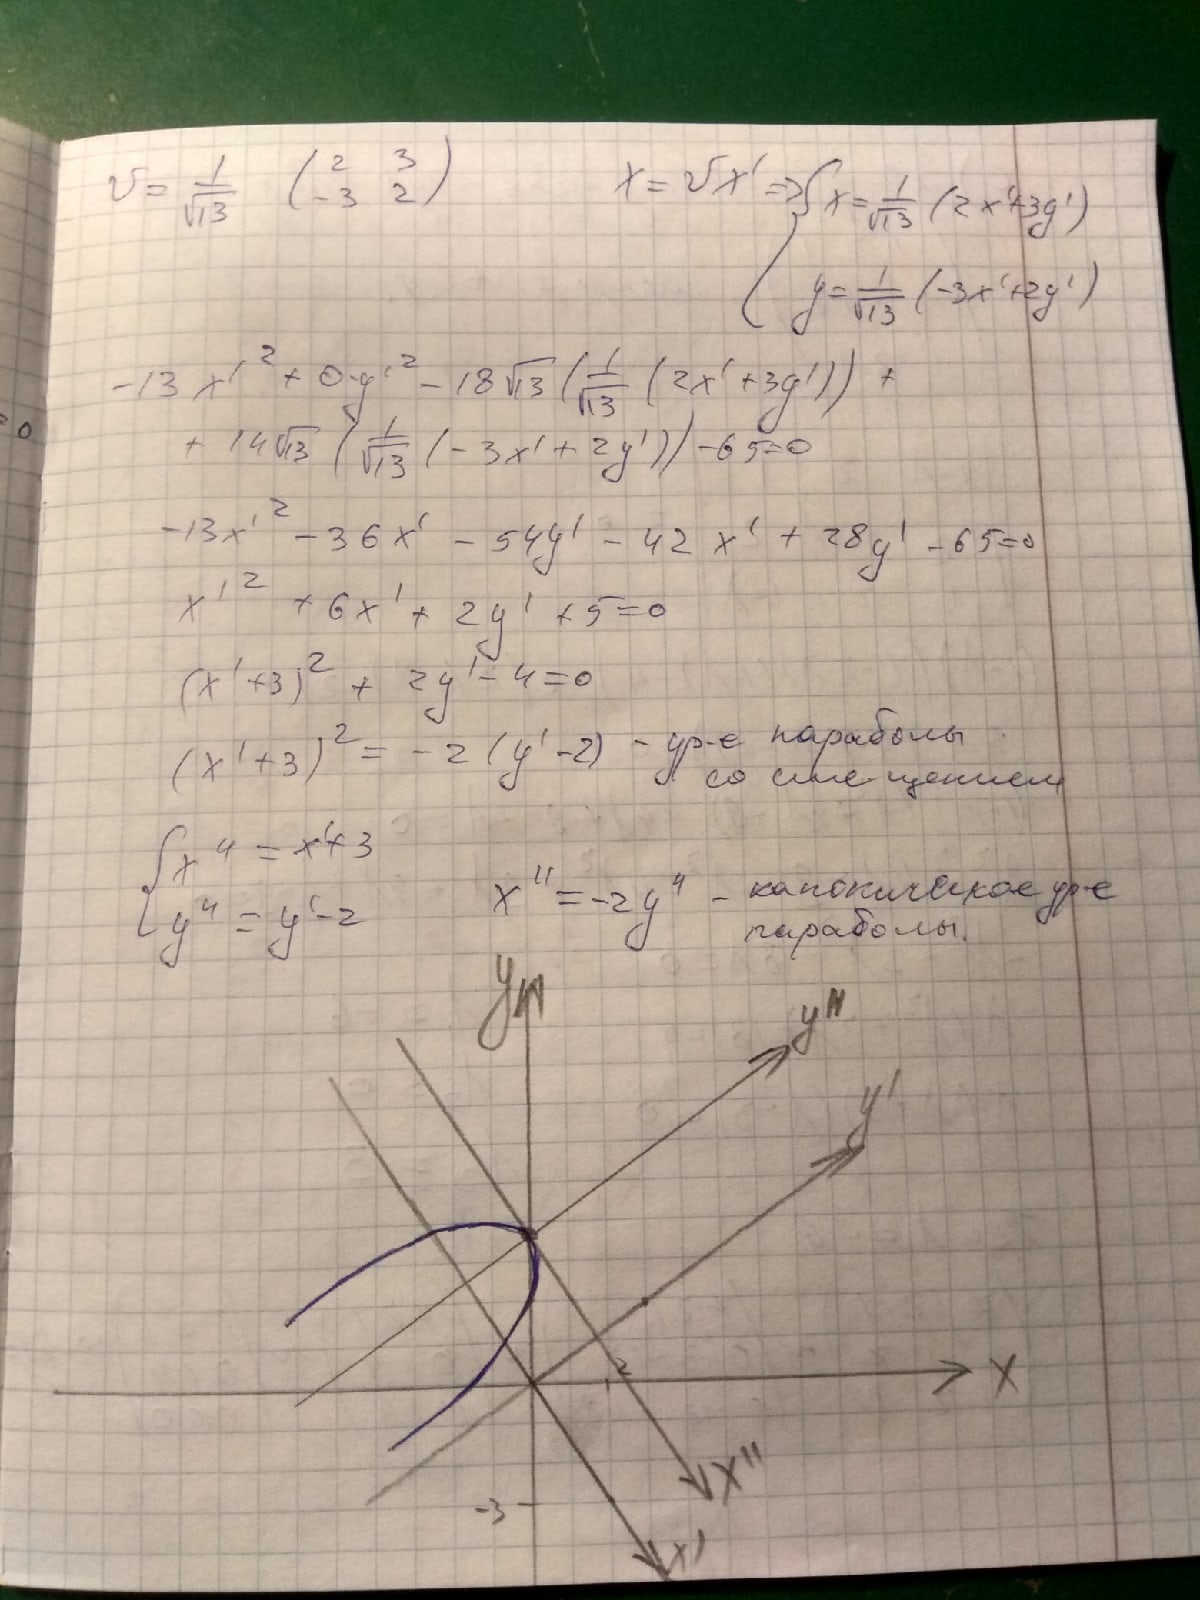 = 0
V = 1/√13 (2 3; -3 2)  X = VX' => { x = 1/√13 (2x'+3y')
y = 1/√13 (-3x'+2y')
-13x'² + 0·y'² - 18√13 (1/√13 (2x'+3y')) +
+ 14√13 (1/√13 (-3x'+2y')) - 65=0
-13x'² - 36x' - 54y' - 42x' + 28y' - 65=0
x'² + 6x' + 2y' + 5=0
(x'+3)² + 2y' - 4=0
(x'+3)² = -2(y'-2) - ур-е параболы
со смещением
{ x" = x'+3
y" = y'-2
x" = -2y" - каноническое ур-е
параболы.
y
y"
y'
2
X
x"
-3
x'